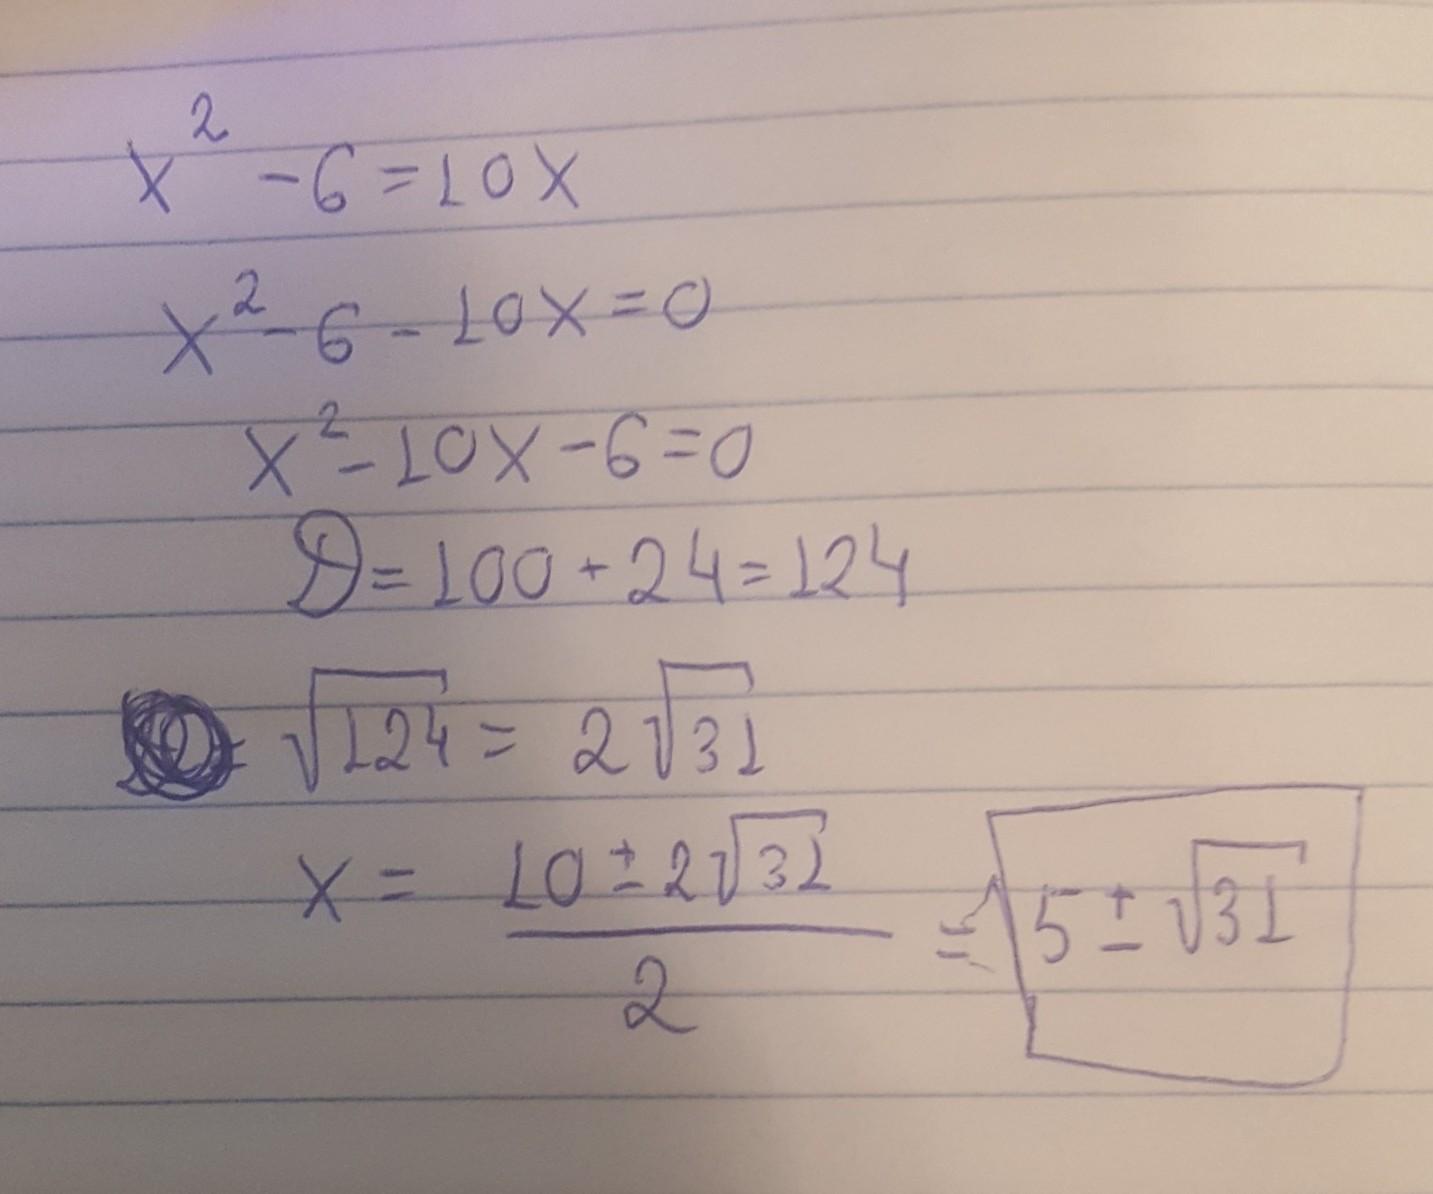 x² - 6 = 10x
x² - 6 - 10x = 0
x² - 10x - 6 = 0
D = 100 + 24 = 124
√124 = 2√31
x = (10 ± 2√31)/2 = 5 ± √31